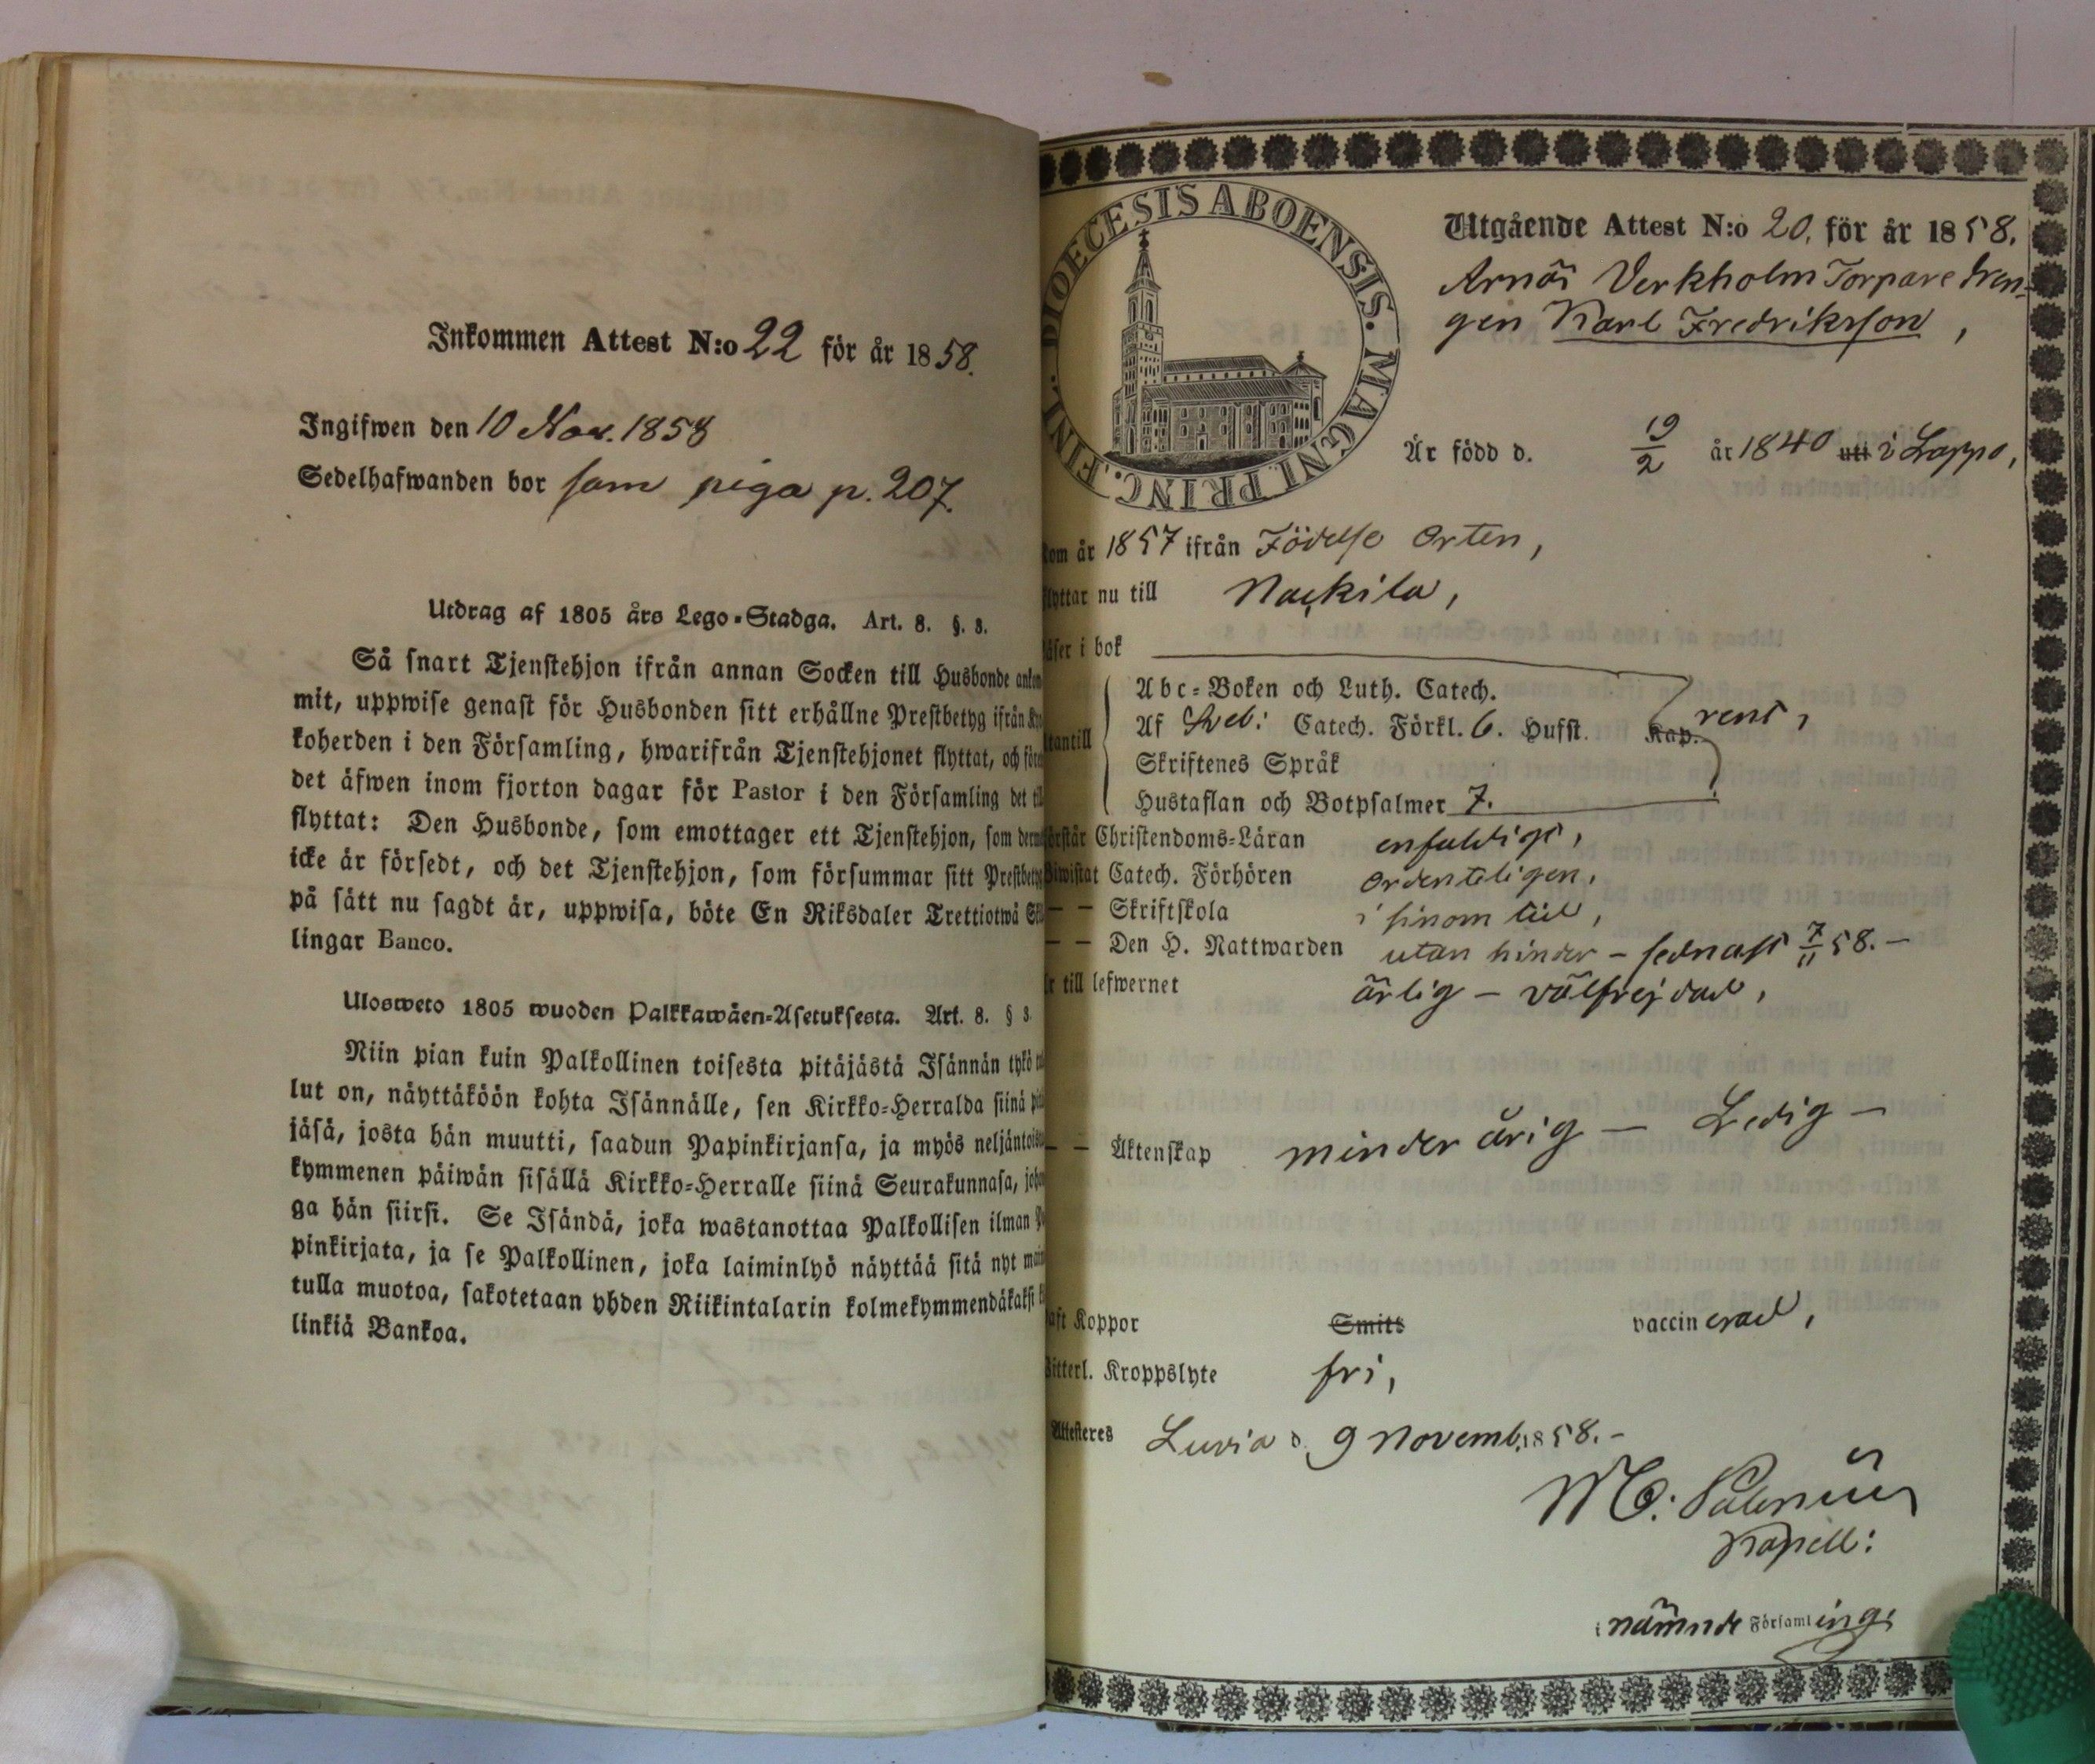 Inkommen Attest N:o 22 för år 1858.
Ingifwen den 10 Nov. 1858
Sedelhafwanden bor som piga p. 207.
Utdrag af 1805 års Lego-Stadga. Art. 8. §. 8.
Så snart Tjenstehjon ifrån annan Socken till Husbonde
mit, uppwise genast för Husbonden sitt erhållne Prestbetyg ifrån
koherden i den Församling, hwarifrån Tjenstehjonet flyttat, och
det äfwen inom fjorton dagar för Pastor i den Församling det
flyttat: Den Husbonde, som emottager ett Tjenstehjon, som
icke är försedt, och det Tjenstehjon, som försummar sitt
på sätt nu sagdt är, uppwisa, böte En Riksdaler Trettiotwå
lingar Banco.
Ulosweto 1805 wuoden Palkkawäen-Asetuksesta. Art. 8. § 8.
Niin pian kuin Palkollinen toisesta pitäjästä Isännän tykö
lut on, näyttäköön kohta Isännälle, sen Kirkko-Herralda siinä
jäsä, josta hän muutti, saadun Papinkirjansa, ja myös
kymmenen päiwän sisällä Kirkko-Herralle siinä Seurakunnasa,
ga hän siirsi. Se Isändä, joka wastanottaa Palkollisen ilman
pinkirjata, ja se Palkollinen, joka laiminlyö näyttää sitä nyt
tulla muotoa, sakotetaan yhden Riikintalarin kolmekymmendäkaksi
linkiä Bankoa.
DIOECESIS ABOENSIS. MAGNI. PRINC. FINL.
Utgående Attest N:o 20. för år 1858.
Arnäs Verkholm Torpare Dren-
gen Karl Fredriksson,
Är född d. 19/2 år 1840 uti i Lappo,
om år 1857 ifrån Födelse Orten,
lyttar nu till Nackila,
äser i bok
Abc-Boken och Luth. Catech.
Af Sveb: Catech. Förkl. 6. Hufst. Kap. rent,
tantill
Skriftenes Språk
Hustaflan och Botpsalmer 7.
örstår Christendoms-Läran enfaldigt,
Biwistat Catech. Förhören Ordenteligen,
— — Skriftskola i sinom tid,
— — Den H. Nattwarden utan hinder – sednast 7/11 58. –
r till lefwernet ärlig – välfrejdad,
— — Äktenskap minderårig – Ledig –
aft Koppor Smitt vaccinerad,
itterl. Kroppslyte fri,
Attesteres Luvia d. 9 Novemb. 1858. –
Kapell:
i nämnde Församling.